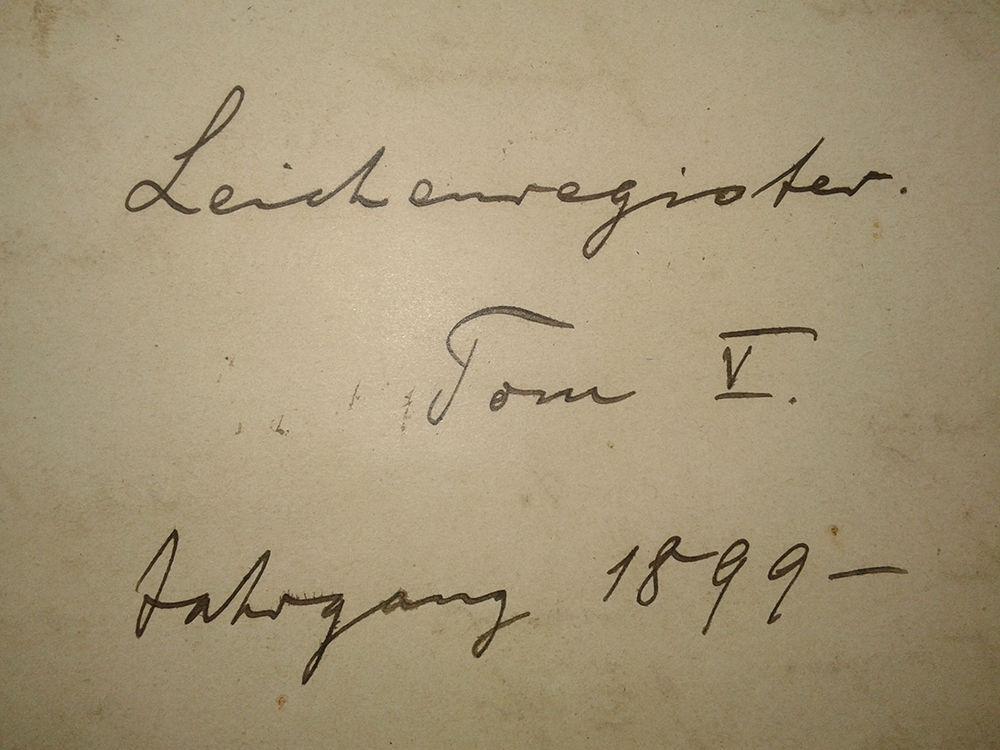 Leichenregister.
Tom V.
Jahrgang 1899 –